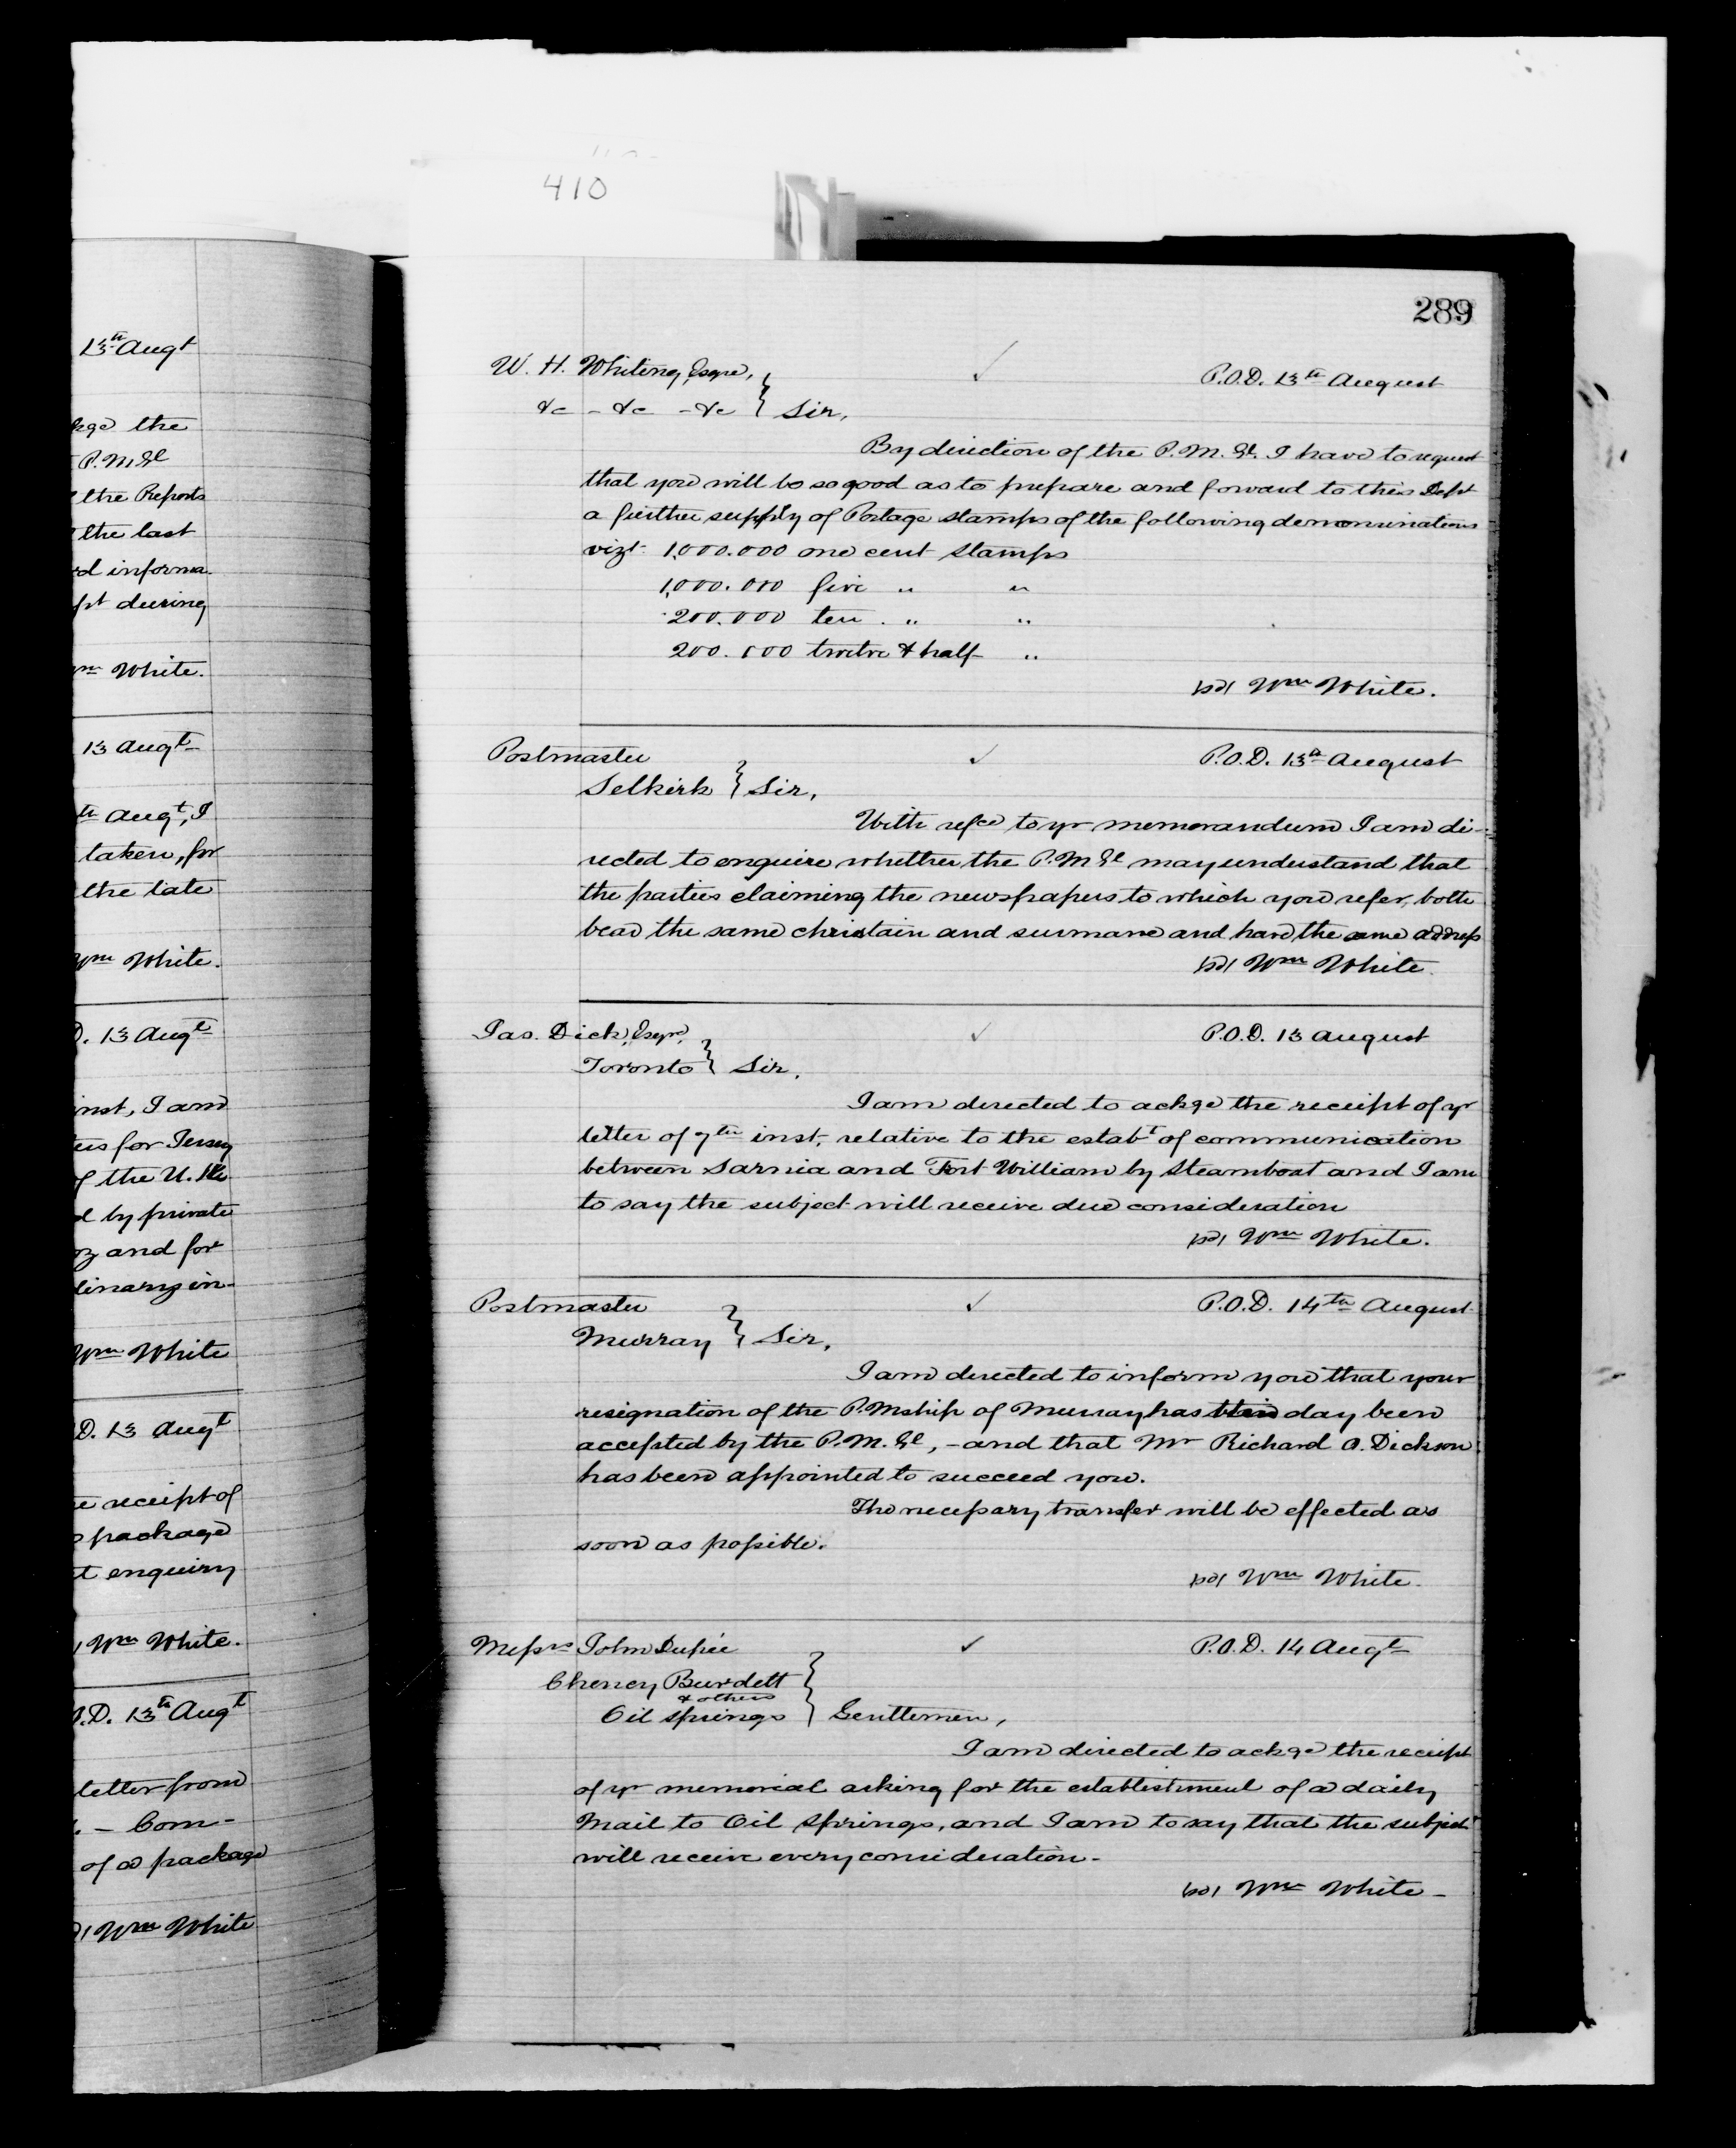 410
289
13th Augt
kge the
P.M.Gl
the Reports
the last
rd informa-
pt during
Wm White.
13 Augt
th Augt, I
taken, for
the late
Wm White.
D. 13 Augt
inst, I am
ters for Jersey
of the U. K
d by private
and for
dinary in-
Wm White
D. 13 Augt
e receipt of
package
t enquiry
Wm White.
O.D. 13th Augt
letter from
. - Com-
of a package
Wm White
W. H. Whiting, Esqre, P.O.D. 13th August
&c - &c - &c } Sir,
By direction of the P.M.Gl. I have to request
that you will be so good as to prepare and forward to this Dept
a further supply of Postage stamps of the following denominations
vizt. 1,000.000 one cent stamps
1,000.000 five " "
200.000 ten . " "
200.000 twelve & half "
sd/ Wm White.
Postmaster P.O.D. 13th August
Selkirk } Sir,
With refce to yr memorandum I am di-
rected to enquire whether the P.M.Gl may understand that
the parties claiming the newspapers to which you refer, both
bear the same christain and surmane and have the same address
sd/ Wm White.
Jas. Dick, Esqre, P.O.D. 13 August
Toronto } Sir,
I am directed to ackge the receipt of yr
letter of 7th inst, relative to the estabt of communication
between Sarnia and Fort William by Steamboat and I am
to say the subject will receive due consideration
sd/ Wm White.
Postmaster P.O.D. 14th August
Murray } Sir,
I am directed to inform you that your
resignation of the P.Mship of Murray has this day been
accepted by the P.M.Gl, - and that Mr Richard O. Dickson
has been appointed to succeed you.
The necessary transfer will be effected as
soon as possible.
sd/ Wm White.
Messrs John Dupée P.O.D. 14 Augt
Cheney Burdett
& others
Oil Springs } Gentlemen,
I am directed to ackge the receipt
of yr memorial asking for the establishment of a daily
Mail to Oil Springs, and I am to say that the subject
will receive every consideration -
sd/ Wm White -